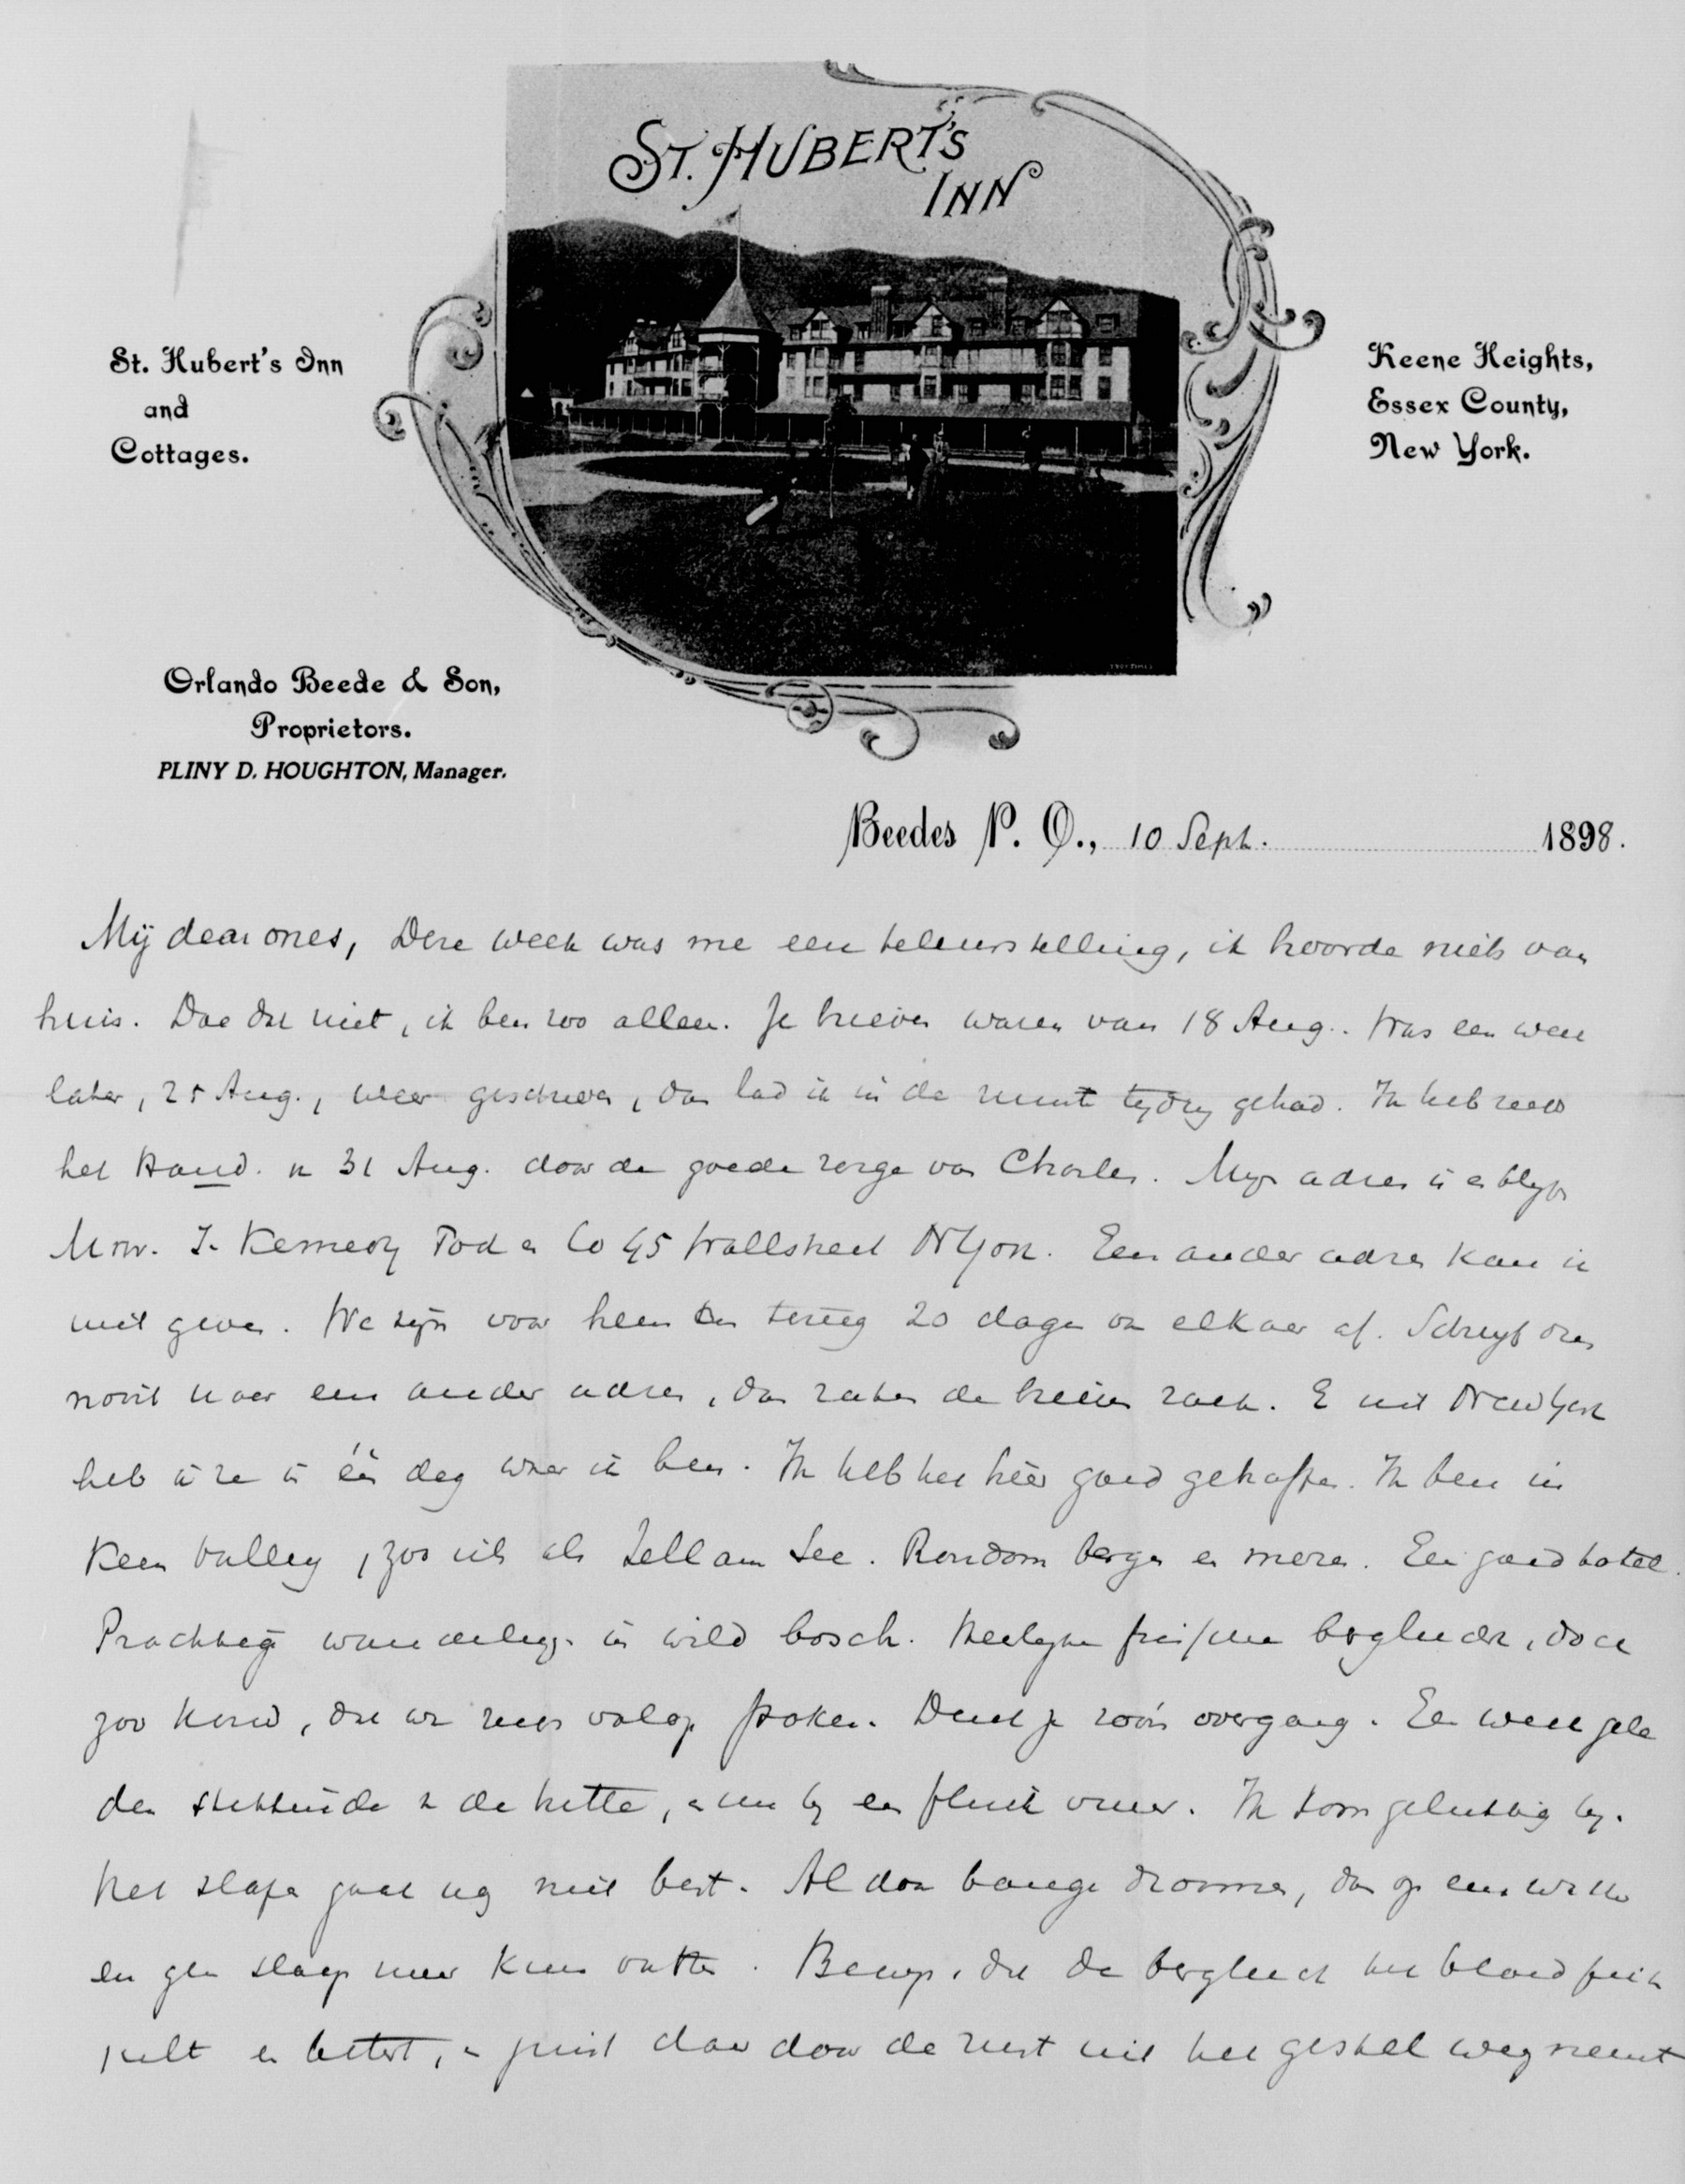 ST. HUBERT'S
INN
St. Hubert's Inn
and
Cottages.
Keene Heights,
Essex County,
New York.
Orlando Beede & Son,
Proprietors.
PLINY D. HOUGHTON, Manager.
Beedes P. O., 10 Sept. 1898.
Mij dear ones, Deze week was me een teleurstelling, ik hoorde niets van
huis. Doe dat niet, ik ben zoo alleen. Je brieven waren van 18 Aug.. Was een week
later, 25 Aug., weer geschreven, dan had ik in de tijding gehad. Ik heb reeds
het Stand. v 31 Aug. door de goede zorge van Charles. Mijn adres is en blijft
Mrr. J. Kennedy Tod en Co 45 Wallstreet NYork. Een ander adres kan ik
niet geven. We zijn voor heen en terug 20 dagen van elkaer af. Schrijf dus
nooit naar een ander adres, dan raken de brieven zoek. En uit NewYork
heb ik ze in één dag waar ik ben. Ik heb het hier goed getroffen. Ik ben in
Keen valley, zoo iets als Zell am See. Rondom bergen en meren. Een goed hotel.
Prachtige wandelingen in wild bosch. Heerlijke frissche berglucht, doch
zoo koud, dat we reeds volop stoken. Denk je zoo'n overgang. Een week gele
den stikkende v de hitte, en nu bij een flink vuur. Ik kom gelukkig bij.
Het slapen gaat nog niet best. Al door bange droomen, dan op eens wakker
en geen slaap meer kunnen vatten. Bewijs, dat de berglucht het bloed
en betert, en juist daardoor de rest uit het gestel wegneemt